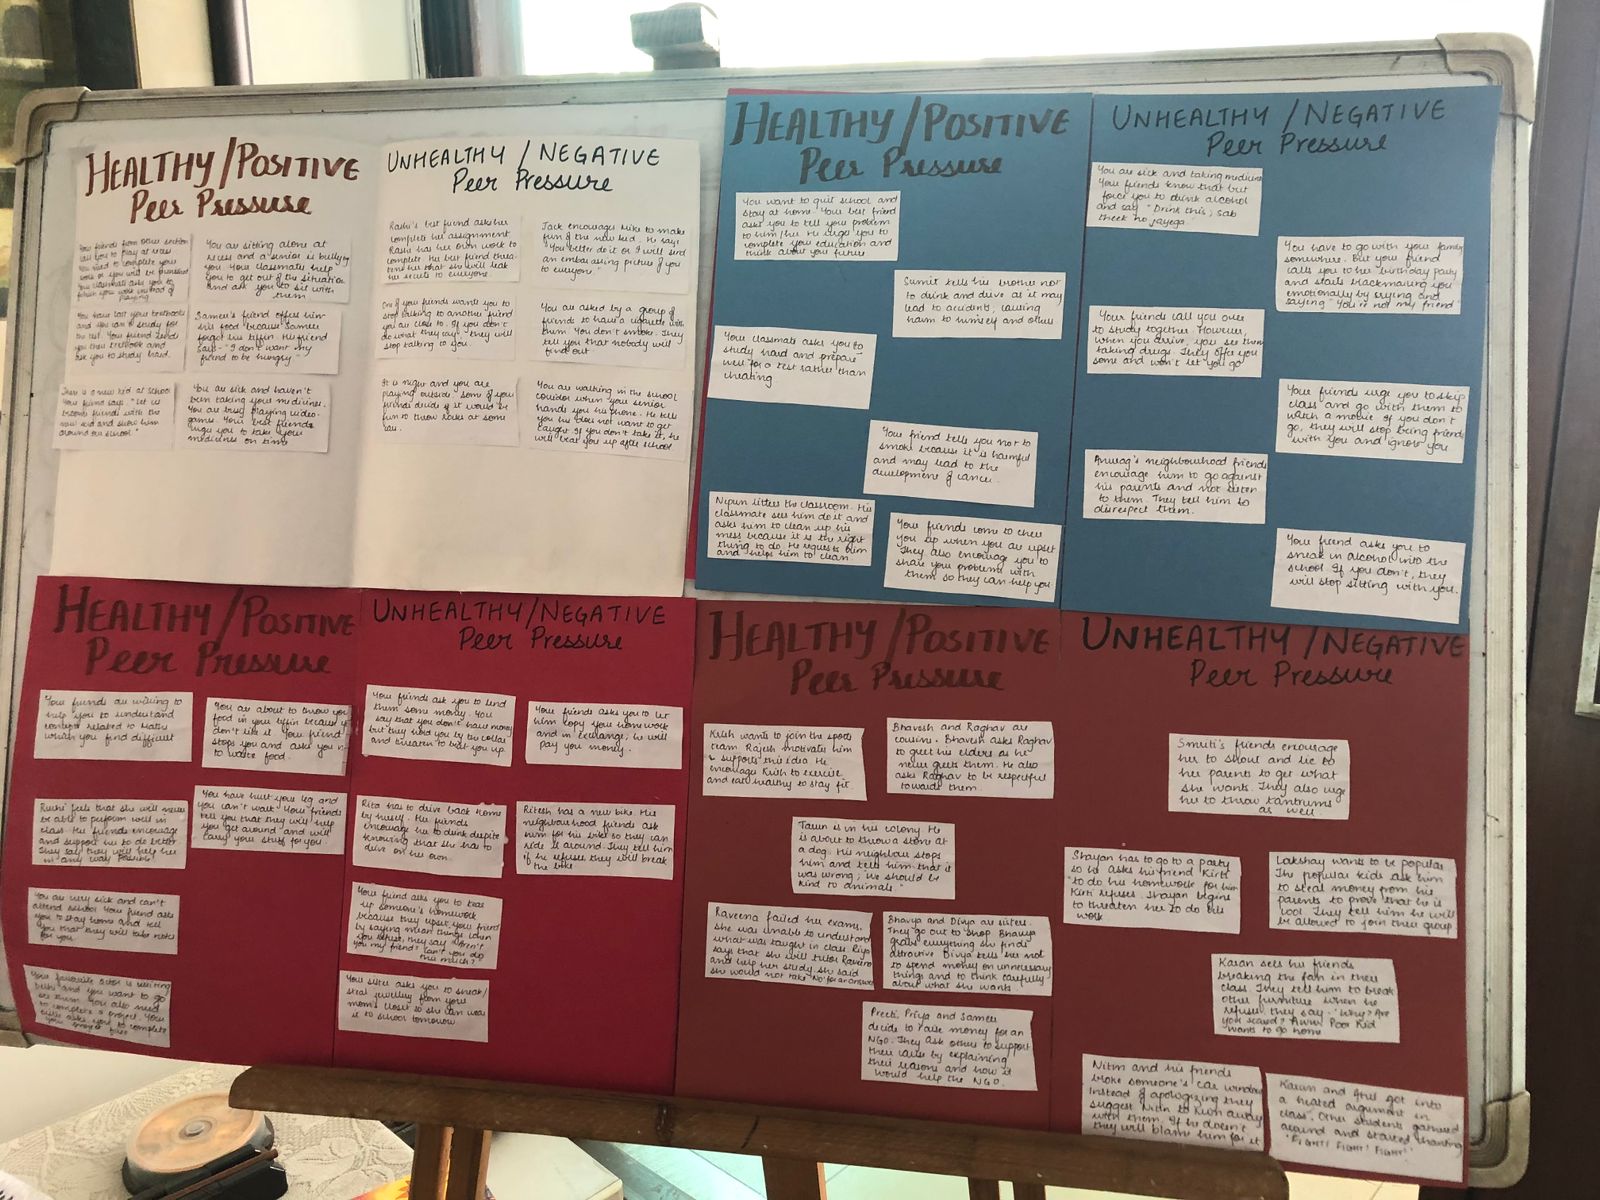 HEALTHY/POSITIVE
Peer Pressure
Your friends from other section
call you to play at recess
You need to complete your
work or you will be punished
Your classmates ask you to
finish your work instead of
playing
You are sitting alone at
recess and a senior is bullying
you. Your classmates help
you to get out of the situation
and ask you to sit with
them
You have lost your textbooks
and you can't study for
the test. Your friend lends
you their textbook and
ask you to study hard.
Sameer's friend offers him
his food because Sameer
forgot his tiffin. His friend
says- "I don't want my
friend to be hungry."
There is a new kid at school
Your friend says, "Let us
become friends with the
new kid and show him
around the school."
You are sick and haven't
been taking your medicines.
You are busy playing video-
games. Your best friends
urge you to take your
medicines on time
UNHEALTHY / NEGATIVE
Peer Pressure
Rashi's best friend asks her
complete her assignment.
Rashi has her own work to
complete. Her best friend threa-
tens her that she will leak
her secrets to everyone.
Jack encourages Mike to make
fun of the new kid. He says
"You better do it or I will send
an embarrassing picture of you
to everyone."
One of your friends wants you to
stop talking to another friend
you are close to. If you don't
do what they say, they will
stop talking to you.
You are asked by a group of
friends to have a cigarette with
them. You don't smoke. They
tell you that nobody will
find out
It is night and you are
playing outside. Some of your
friends decide if it would be
fun to throw rocks at some
car.
You are walking in the school
corridor when your senior
hands you his phone. He tells
you he does not want to get
caught. If you don't take it, he
will beat you up after school
HEALTHY/POSITIVE
Peer Pressure
You want to quit school and
stay at home. Your best friend
asks you to tell your problem
to him/her. He urges you to
complete your education and
think about your future
Sumit tells his brother not
to drink and drive as it may
lead to accidents, causing
harm to himself and others
Your classmate asks you to
study hard and prepare
well for a test rather than
cheating
Your friend tells you not to
smoke because it is harmful
and may lead to the
development of cancer.
Nipun litters the classroom. His
classmate sees him do it and
asks him to clean up his
mess because it is the right
thing to do. He requests him
and helps him to clean
Your friends come to cheer
you up when you are upset
They also encourage you to
share your problems with
them so they can help you
UNHEALTHY/NEGATIVE
Peer Pressure
You are sick and taking medicine
Your friends know that but
force you to drink alcohol
and say "Drink this, sab
theek ho jayega."
You have to go with your family
somewhere. But your friend
calls you to her birthday party
and starts blackmailing you
emotionally by crying and
saying "You're not my friend"
Your friends call you over
to study together. However,
when you arrive, you see them
taking drugs. They offer you
some and won't let you go
Your friends urge you to skip
class and go with them to
watch a movie. If you don't
go, they will stop being friends
with you and ignore you
Anurag's neighbourhood friends
encourage him to go against
his parents and not listen
to them. They tell him to
disrespect them.
Your friend asks you to
sneak in alcohol into the
school. If you don't, they
will stop sitting with you.
HEALTHY/POSITIVE
Peer Pressure
Your friends are willing to
help you to understand
content related to Maths
which you find difficult
You are about to throw your
food in your tiffin because you
don't like it. Your friend
stops you and asks you not
to waste food.
Ruchi feels that she will never
be able to perform well in
class. Her friends encourage
and support her to do better
They say they will help her
in any way possible!
You have hurt your leg and
you can't walk. Your friends
tell you that they will help
you get around and will
carry your stuff for you
You are very sick and can't
attend school. Your friend asks
you to stay home and tell
you that they will take notes
for you.
Your favourite actor is visiting
Delhi and you want to go
see them. You also need
to complete a project. Your
asks you to complete
your project first
UNHEALTHY/NEGATIVE
Peer Pressure
Your friends ask you to lend
them some money. You
say that you don't have money
but they hold you by the collar
and threaten to beat you up.
Your friends asks you to let
him copy your homework
and in exchange, he will
pay you money.
Rita has to drive back home
by herself. Her friends
encourage her to drink despite
knowing that she has to
drive on her own.
Ritesh has a new bike. His
neighbourhood friends ask
him for his bike so they can
ride it around. They tell him
if he refuses they will break
the bike
Your friend asks you to tear
up someone's homework
because they upset your friend
by saying mean things. When
you refuse, they say "Aren't
you my friend? Can't you do
this much?
Your sister asks you to sneak/
steal jewellery from your
mom's closet so she can wear
it to school tomorrow
HEALTHY/POSITIVE
Peer Pressure
Krish wants to join the sports
team. Rajesh motivates him
& supports this idea. He
encourages Krish to exercise
and eat healthy to stay fit
Bhavesh and Raghav are
cousins. Bhavesh asks Raghav
to greet his elders as he
never greets them. He also
asks Raghav to be respectful
towards them.
Tarun is in his colony. He
is about to throw a stone at
a dog. His neighbour stops
him and tells him that it
was wrong; We should be
kind to animals."
Raveena failed her exams.
She was unable to understand
what was taught in class. Riya
says that she will tutor Raveena
and help her study. She said
she would not take 'No' for an answer
Bhavya and Divya are sisters.
They go out to shop. Bhavya
grabs everything she finds
attractive. Divya tells her not
to spend money on unnecessary
things and to think carefully
about what she wants
Preeti, Priya and Sameer
decide to raise money for an
NGO. They ask others to support
their cause by explaining
their reasons and how it
would help the NGO.
UNHEALTHY/NEGATIVE
Peer Pressure
Smriti's friends encourage
her to shout and lie to
her parents to get what
she wants. They also urge
her to throw tantrums
as well.
Shayan has to go to a party
so he asks his friend Kirti
to do his homework for him
Kirti refuses. Shayan begins
to threaten her to do his
work.
Lakshay wants to be popular
The popular kids ask him
to steal money from his
parents to prove that he is
cool. They tell him he will
be allowed to join their group
Karan sees his friends
breaking the fan in their
class. They tell him to break
other furniture. When he
refuses they say- "Why? Are
you scared? Aww Poor Kid
wants to go home
Nitin and his friends
broke someone's car window
Instead of apologizing they
suggest Nitin to run away
with them. If he doesn't
they will blame him for it
Karan and Atul got into
a heated argument in
class. Other students gathered
around and started chanting
"FIGHT! FIGHT! FIGHT!"